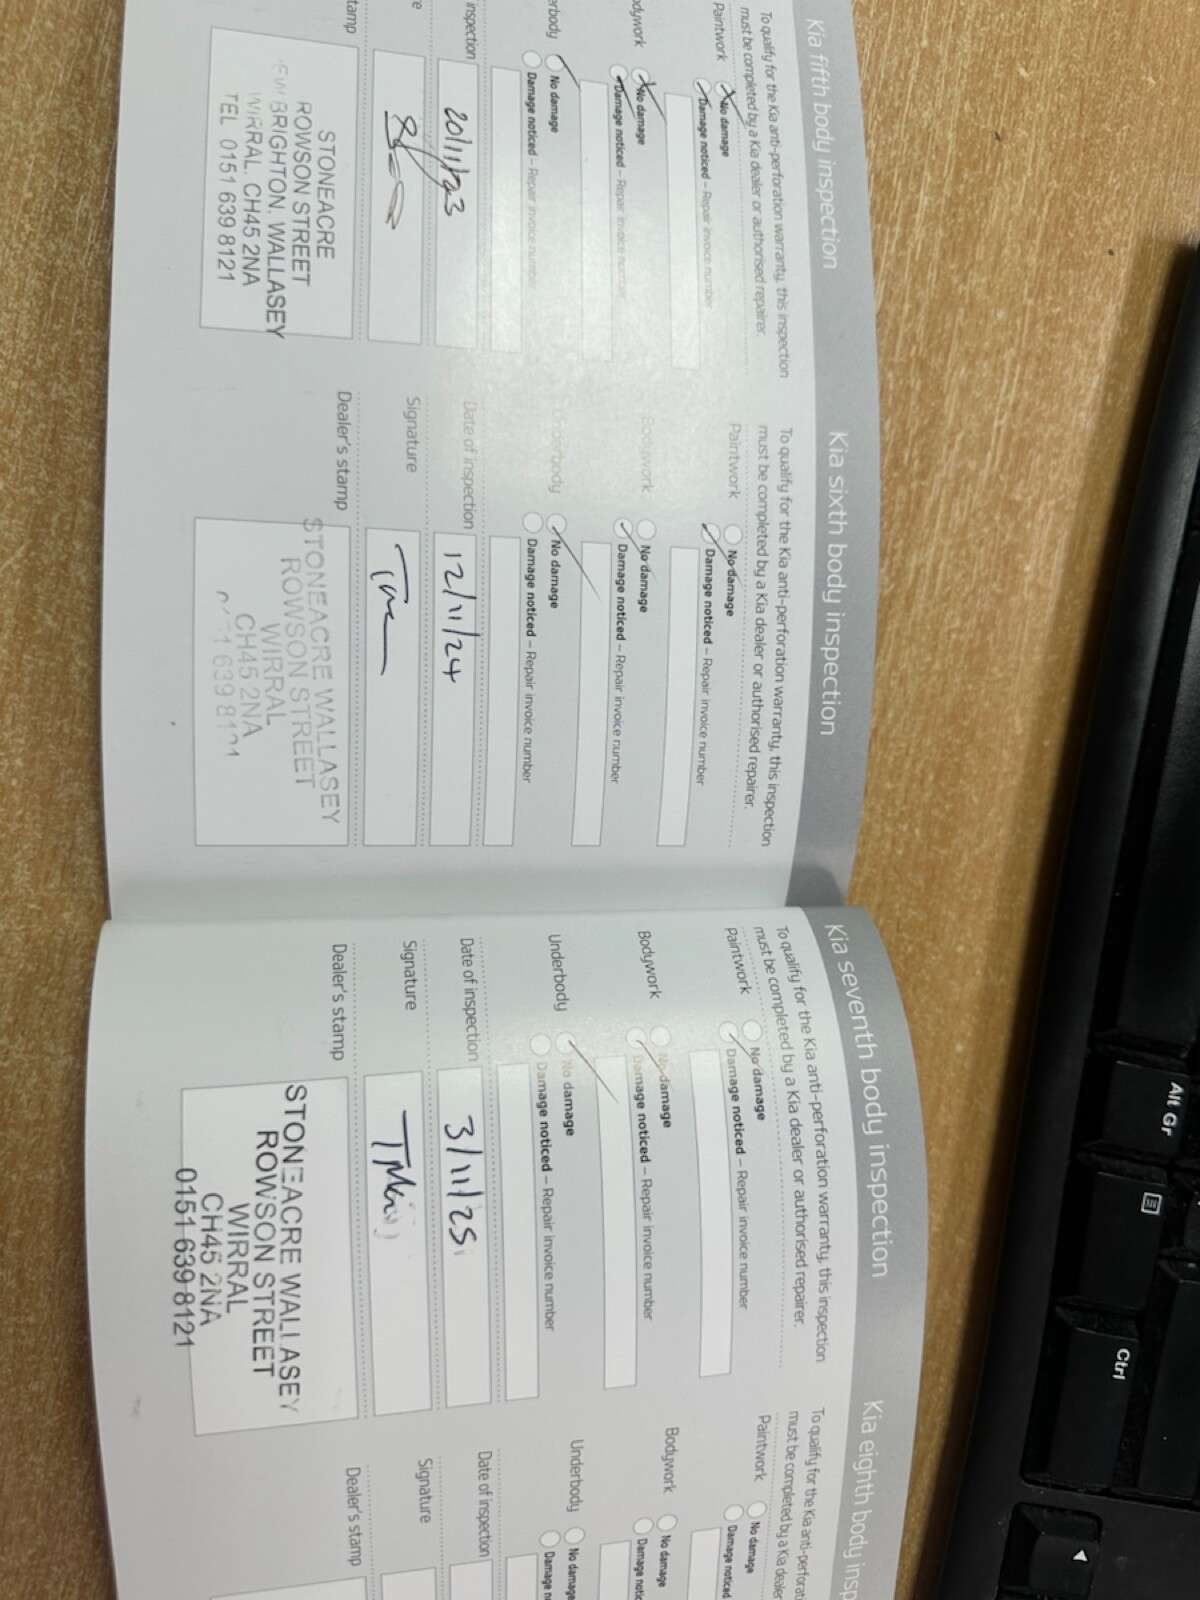 Kia fifth body inspection
To qualify for the Kia anti-perforation warranty, this inspection
must be completed by a Kia dealer or authorised repairer.
Paintwork
No damage
Damage noticed – Repair invoice number
dywork
No damage
Damage noticed – Repair invoice number
rbody
No damage
Damage noticed – Repair invoice number
inspection
20/11/23
re
tamp
STONEACRE
ROWSON STREET
EW BRIGHTON. WALLASEY
WIRRAL. CH45 2NA
TEL 0151 639 8121
Kia sixth body inspection
To qualify for the Kia anti-perforation warranty, this inspection
must be completed by a Kia dealer or authorised repairer.
Paintwork
No damage
Damage noticed – Repair invoice number
Bodywork
No damage
Damage noticed – Repair invoice number
Underbody
No damage
Damage noticed – Repair invoice number
Date of inspection
12/11/24
Signature
Dealer's stamp
STONEACRE WALLASEY
ROWSON STREET
WIRRAL
CH45 2NA
639 8121
Kia seventh body inspection
To qualify for the Kia anti-perforation warranty, this inspection
must be completed by a Kia dealer or authorised repairer.
Paintwork
No damage
Damage noticed – Repair invoice number
Bodywork
No damage
Damage noticed – Repair invoice number
Underbody
No damage
Damage noticed – Repair invoice number
Date of inspection
3/11/25
Signature
Dealer's stamp
STONEACRE WALLASEY
ROWSON STREET
WIRRAL
CH45 2NA
0151 639 8121
Kia eighth body insp
To qualify for the Kia anti-perforati
must be completed by a Kia dealer
Paintwork
No damage
Damage noticed
Bodywork
No damage
Damage notic
Underbody
No damage
Damage n
Date of inspection
Signature
Dealer's stamp
Alt Gr
Ctrl